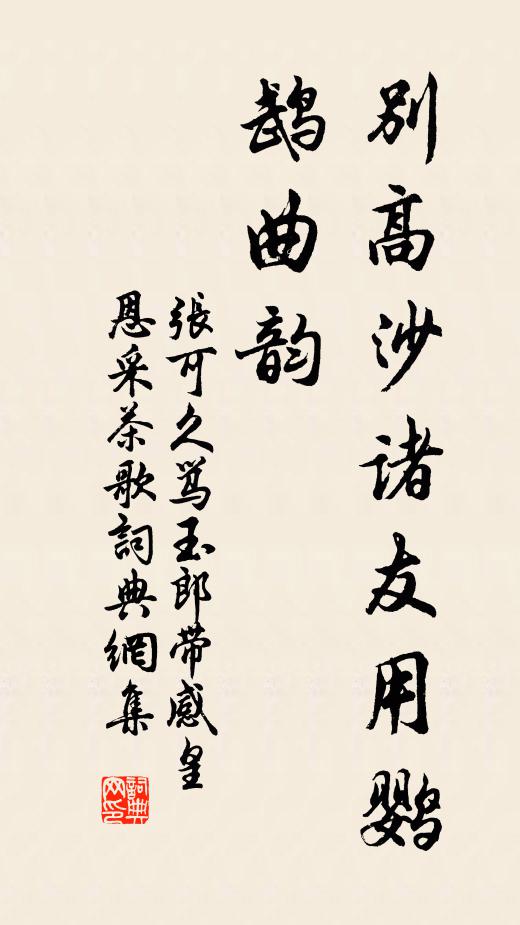 别高沙诸友用鹦
鹉曲韵
張可久骂玉郎带感皇
恩采茶歌詞典網集
詞典
网印